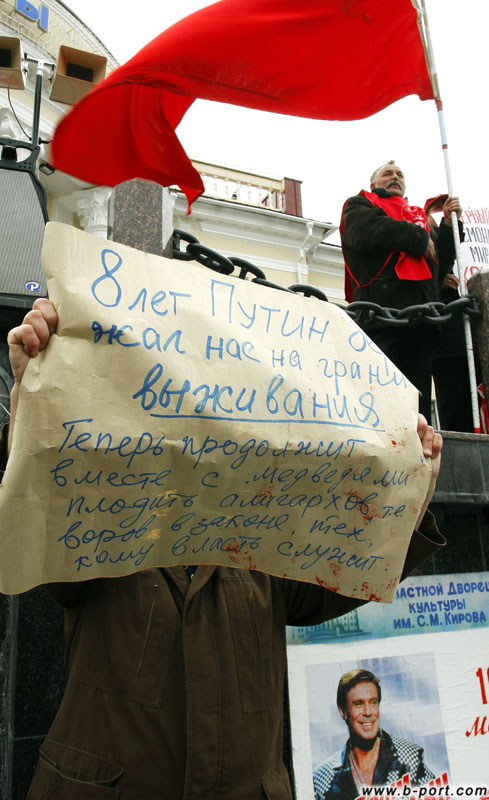 8 лет Путин
жал нас на грани
выживания
Теперь продолжит
вместе с медведями
плодить алигархов, те
воров в законе, тех,
кому власть служит.
АСТНОЙ ДВОРЕЦ
КУЛЬТУРЫ
ИМ. С.М. КИРОВА
www.b-port.com